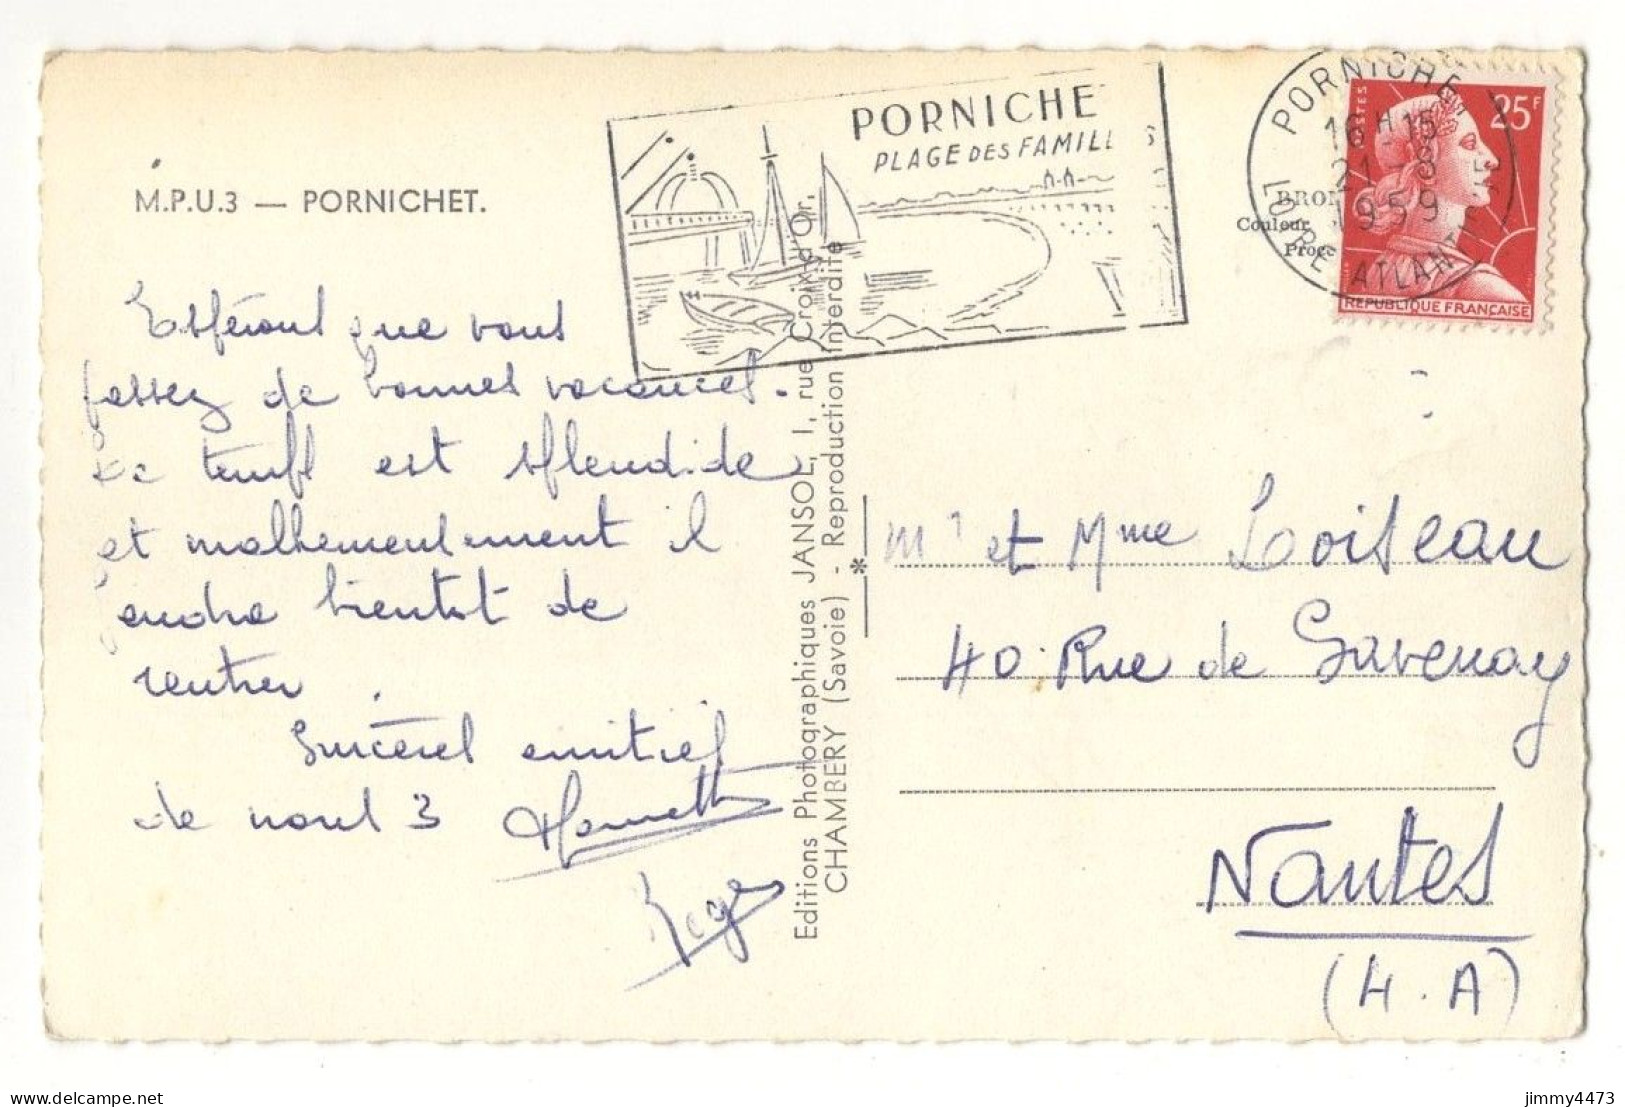 M.P.U.3 — PORNICHET.
PORNICHE
PLAGE DES FAMILL S
PORNICHET
16H-15
21-8
1959
LOIRE ATLANTIQUE
POSTES
25F
REPUBLIQUE FRANÇAISE
BROM
Couleur
Proce
Espérant que vous
passez de bonnes vacances.
Le temps est splendide
et malheureusement il
audra bientot de
rentrer.
Sincères amitiés
de nous 3
Roger
Editions Photographiques JANSOL, 1, rue Croix d'Or,
CHAMBERY (Savoie) - Reproduction Interdite
Mr et Mme Loiseau
40 Rue de Savenay
Nantes
(L.A)
delcampe.net
jimmy4473